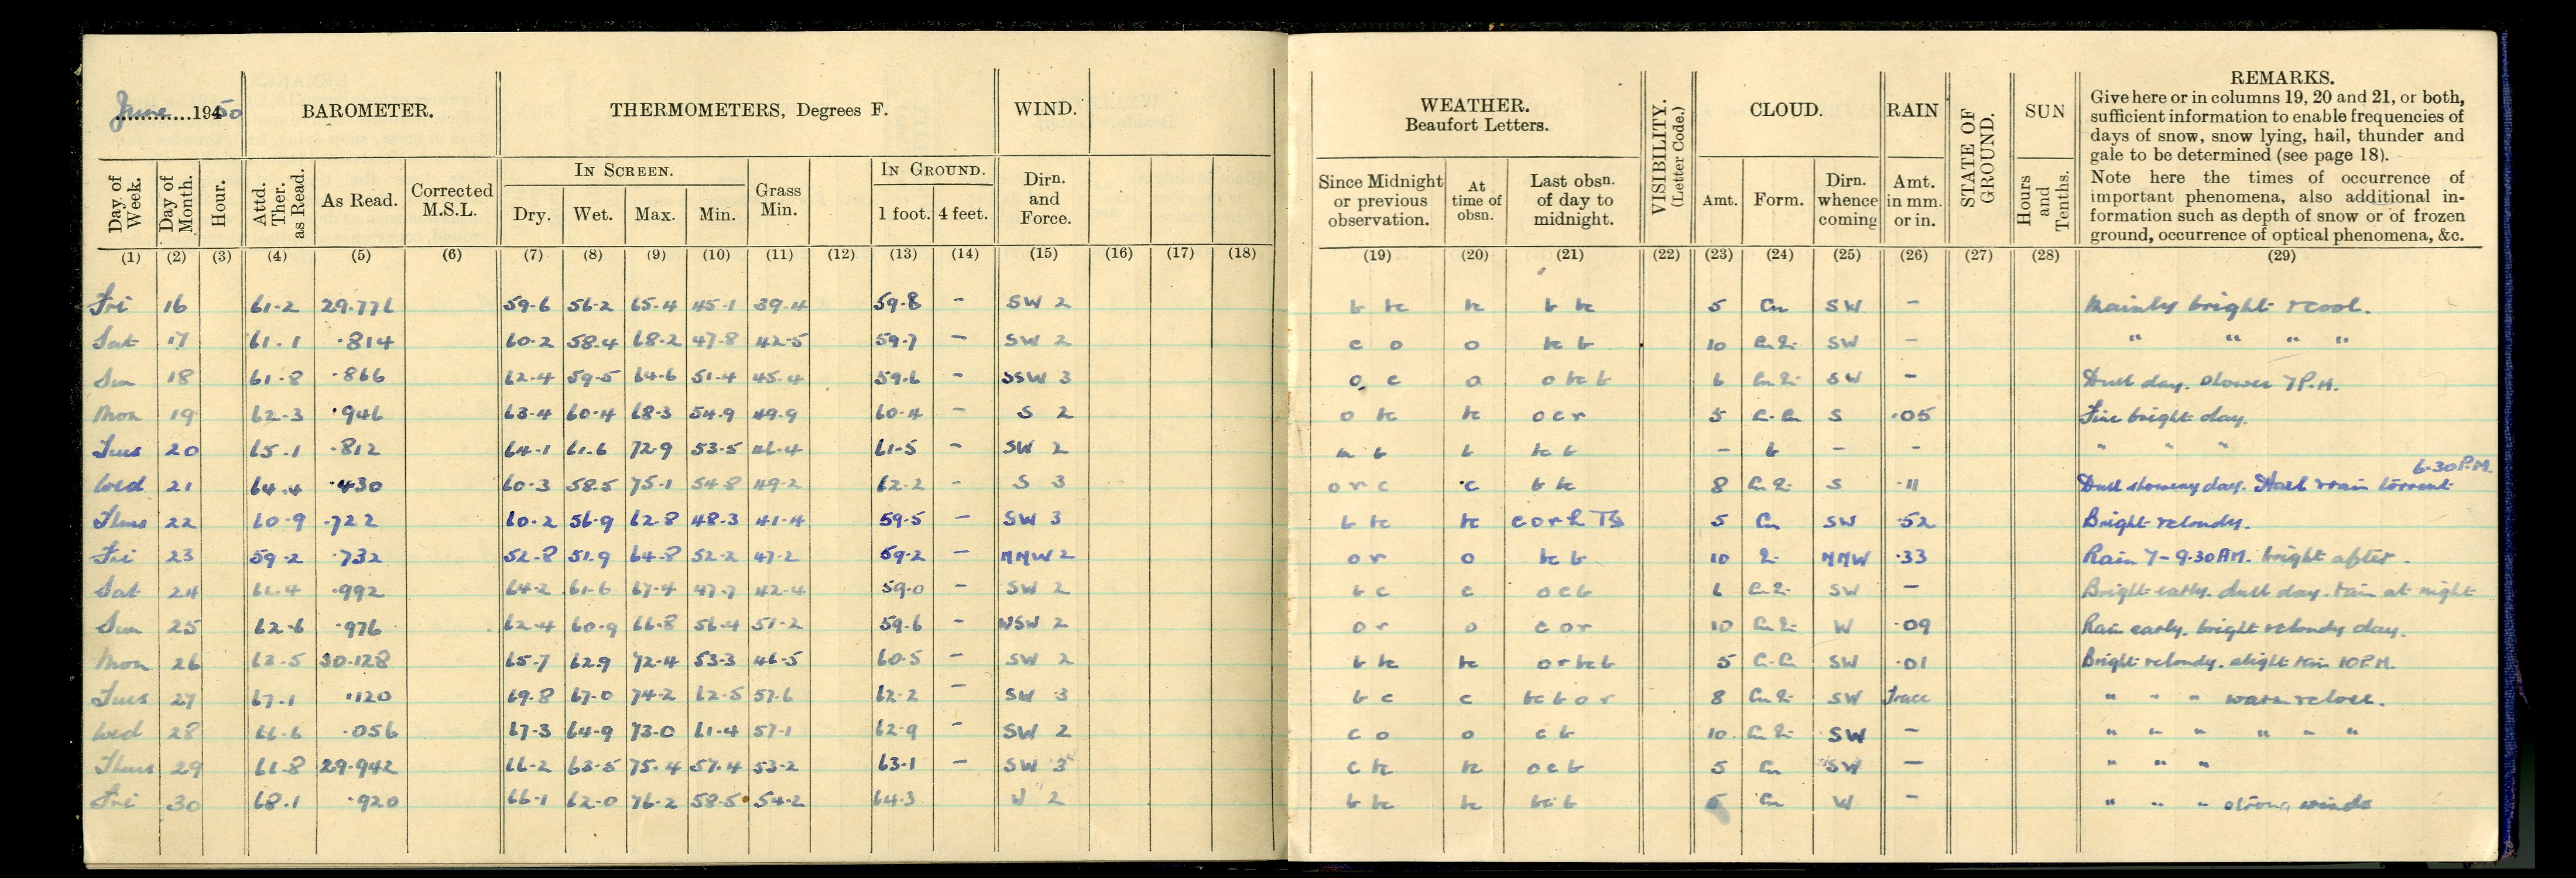 June 1950 BAROMETER. THERMOMETERS, Degrees F. WIND. WEATHER. Beaufort Letters. VISIBILITY. (Letter Code.) CLOUD. RAIN STATE OF GROUND. SUN REMARKS.
Give here or in columns 19, 20 and 21, or both,
sufficient information to enable frequencies of
days of snow, snow lying, hail, thunder and
gale to be determined (see page 18).
Note here the times of occurrence of
important phenomena, also additional in-
formation such as depth of snow or of frozen
ground, occurrence of optical phenomena, &c.
IN SCREEN. IN GROUND.
Day of Week. Day of Month. Hour. Attd. Ther. as Read. As Read. Corrected M.S.L. Dry. Wet. Max. Min. Grass Min. 1 foot. 4 feet. Dirn. and Force. Since Midnight or previous observation. At time of obsn. Last obsn. of day to midnight. Amt. Form. Dirn. whence coming Amt. in mm. or in. Hours and Tenths.
(1) (2) (3) (4) (5) (6) (7) (8) (9) (10) (11) (12) (13) (14) (15) (16) (17) (18) (19) (20) (21) (22) (23) (24) (25) (26) (27) (28) (29)
Fri 16 61.2 29.776 59.6 56.2 65.4 45.1 39.4 59.8 - SW 2 b bc bc b bc 5 Cu SW - Mainly bright & cool.
Sat 17 61.1 .814 60.2 58.4 68.2 47.8 42.5 59.7 - SW 2 c o o bc b 10 SW - " " " "
Sun 18 61.8 .866 62.4 59.5 64.6 51.4 45.4 59.6 - SSW 3 o c o o bc b 6 SW - Dull day. Shower 7 P.M.
Mon 19 62.3 .946 63.4 60.4 68.3 54.9 49.9 60.4 - S 2 o bc bc o c r 5 S .05 Fine bright day.
Tues 20 65.1 .812 64.1 61.6 72.9 53.5 46.4 61.5 - SW 2 m b b bc b - b - - " " "
Wed 21 64.4 .430 60.3 58.5 75.1 54.8 49.2 62.2 - S 3 o r c c b bc 8 S .11 Dull showery day. Hail & rain torrent 6.30 P.M.
Thurs 22 60.9 .722 60.2 56.9 62.8 48.3 41.4 59.5 - SW 3 b bc bc c o r h 5 Cu SW .52 Bright & cloudy.
Fri 23 59.2 .732 52.8 51.9 64.8 52.2 47.2 59.2 - NNW 2 o r o bc b 10 NNW .33 Rain 7 - 9.30 AM. bright after.
Sat 24 61.4 .992 64.2 61.6 67.4 47.7 42.4 59.0 - SW 2 b c c o c b 6 SW - Bright early. dull day. rain at night
Sun 25 62.6 .976 62.4 60.9 66.8 56.4 51.2 59.6 - WSW 2 o r o c o r 10 W .09 Rain early. bright & cloudy day.
Mon 26 63.5 30.128 65.7 62.9 72.4 53.3 46.5 60.5 - SW 2 b bc bc o r bc b 5 SW .01 Bright & cloudy. slight rain 10 P.M.
Tues 27 67.1 .120 69.8 67.0 74.2 62.5 57.6 62.2 - SW 3 b c c bc b o r 8 SW Trace " " " warm & close.
Wed 28 66.6 .056 67.3 64.9 73.0 61.4 57.1 62.9 - SW 2 c o o c b 10 SW - " " " " " "
Thurs 29 61.8 29.942 66.2 63.5 75.4 57.4 53.2 63.1 - SW 3 c bc bc o c b 5 Cu SW - " " "
Fri 30 68.1 .920 66.1 62.0 76.2 58.5 54.2 64.3 W 2 b bc bc bc b 5 Cu W - " " " strong winds